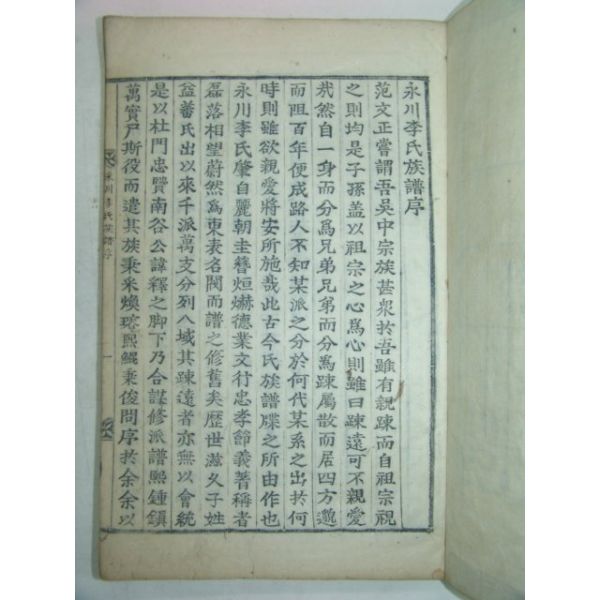 永川李氏族譜序
范文正嘗謂吾吳中宗族甚衆於吾雖有親踈而自祖宗視
之則均是子孫盖以祖宗之心爲心則雖曰踈遠可不親愛
㢤然自一身而分爲兄弟兄弟而分爲踈屬散而居四方邈
而阻百年便成路人不知某派之分於何代某系之出於何
時則雖欲親愛將安所施哉此古今氏族譜牒之所由作也
永川李氏肇自麗朝圭簪烜爀德業文行忠孝節義著稱者
磊落相望蔚然爲東表名閥而譜之修舊矣歷世滋久子姓
益蕃氏出以來千派萬支分列八域其踈遠者亦無以會統
是以杜門忠賢南谷公諱釋之脚下乃合謀修派譜熙鍾鎭
萬實尸斯役而遣其族秉釆煥璿熙鯤秉俊問序於余余以
永川李氏族譜序
一